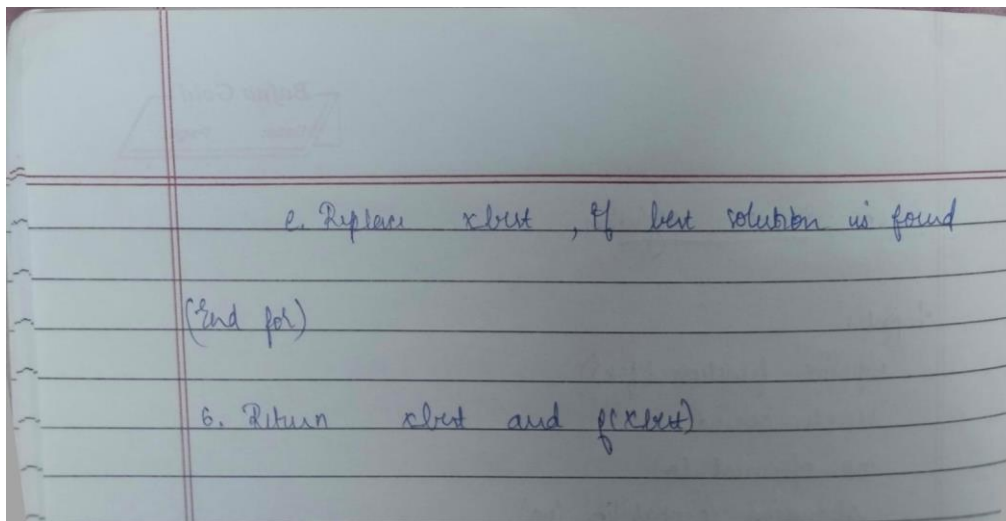 e. Replace xbest , if best solution is found
(End for)
6. Return xbest and f(xbest)